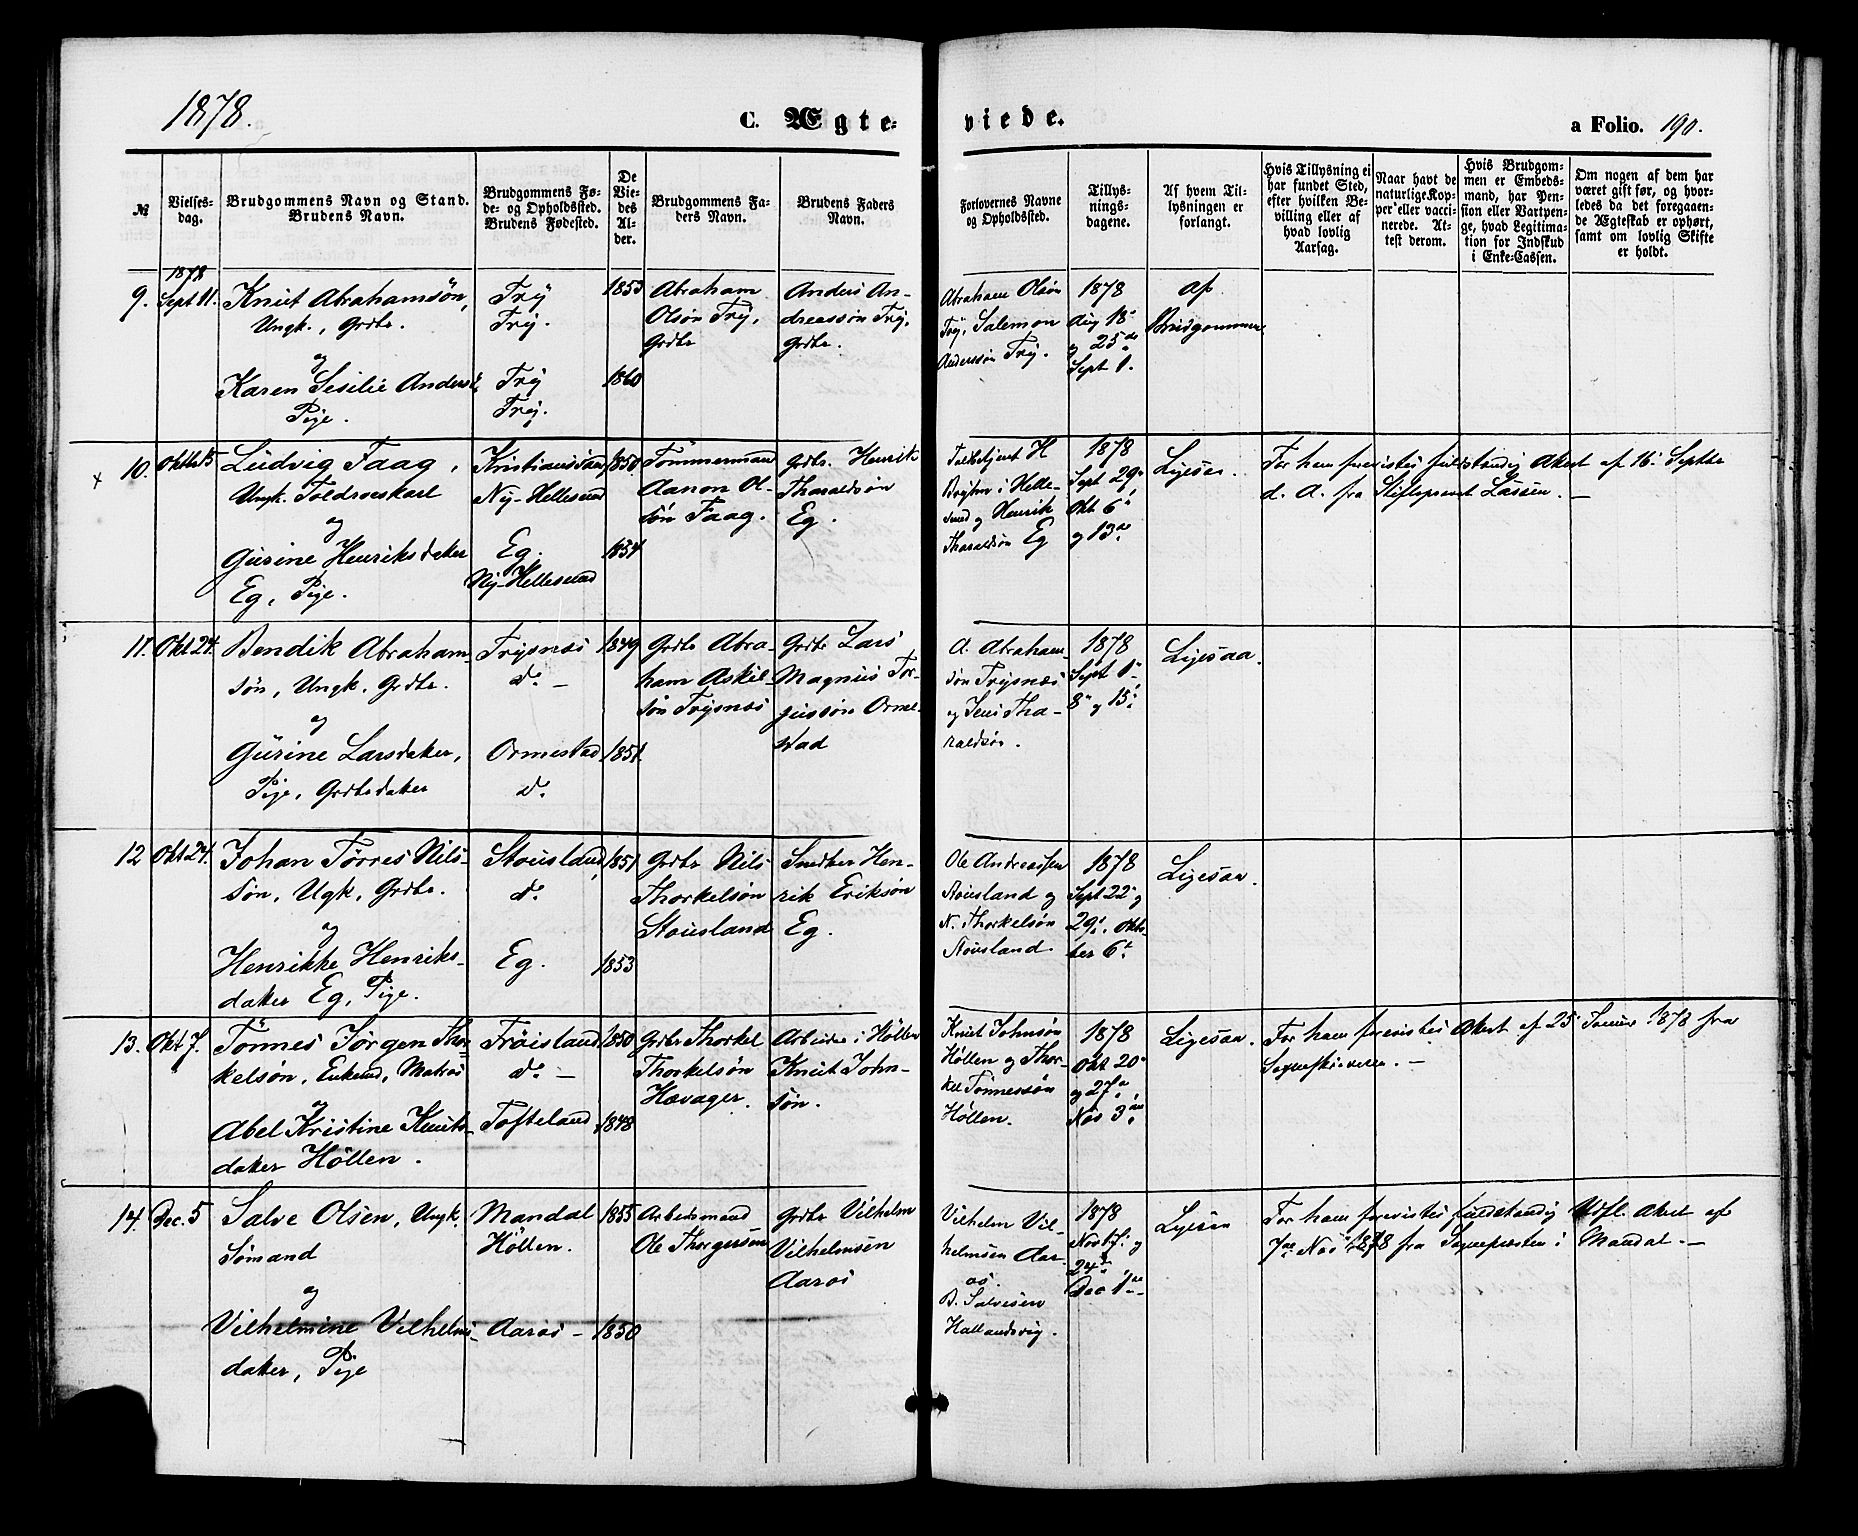 1878.
C. Ægte-
viede.
a Folio. 190.
№
Vielses-
dag.
Brudgommens Navn og Stand.
Brudens Navn.
Brudgommens Fø-
de- og Opholdssted.
Brudens Fødested.
De
Vie-
des
Al-
der.
Brudgommens Fa-
ders Navn.
Brudens Faders
Navn.
Forlovernes Navne
og Opholdssted.
Tillys-
nings-
dagene.
Af hvem Til-
lysningen er
forlangt.
Hvis Tillysning ei
har fundet Sted,
efter hvilken Be-
villing eller af
hvad lovlig
Aarsag.
Naar havt de
naturlige Kop-
per eller vacci-
nerede. At-
test derom.
Hvis Brudgom-
men er Embeds-
mand, har Pen-
sion eller Vartpen-
ge, hvad Legitima-
tion for Indskud
i Enke-Cassen.
Om nogen af dem har
været gift før, og hvor-
ledes da det foregaaen-
de Ægteskab er ophørt,
samt om lovlig Skifte
er holdt.
9.
1878
Sept 11.
Knut Abrahamsøn,
Ungk., Grdbr.
og
Karen Sesilie Anders
Pige.
Try
Try.
Try
Try.
1853
1860
Abraham
Olsøn Try,
Grdbr
Anders An-
dreassøn Try,
Grdbr.
Abraham Olsøn
Try, Salemon
Anderssøn Try.
1878
Aug 18
og 25de
Sept 1.
af
Brudgommen
x 10.
Oktbr 15
Ludvig Faag,
Ungk. Toldroeskarl
og
Gurine Henriksdatter
Eg, Pige.
Kristianssand
Ny-Hellesund
Eg.
Ny-Hellesund
1850
1854
Tømmermand
Aanon Ol-
søn Faag.
Grdbr. Henrik
Tharaldsøn
Eg.
Toldbetjent H
i Helle-
sund og Henrik
Tharaldsøn Eg
1878
Sept 29
Okt 6
og 13de
Ligesaa.
For ham forevistes fuldstændig Attest af 16. Septbr
d. A. fra Stiftsprovst Lassen. —
11.
Okt 24.
Bendik Abraham-
søn, Ungk. Grdbr.
og
Gurine Larsdatter,
Pige, Grdbrdatter
Trysnæs
do —
Ormestad
do
1849
1851
Grdbr Abra-
ham Askil-
søn Trysnæs
Grdbr Lars
Magnus Tor-
jussøn Orme-
stad
A. Abraham-
søn Trysnæs
og Jens Tha-
raldsøn.
1878
Sept 1
8 og 15
Ligesaa.
12
Okt 24.
Johan Tørres Nils-
søn, Ugk, Grdbr.
og
Henrikke Henriks-
datter Eg, Pige.
Stousland,
do
Eg.
1851
1853
Grdbr Nils
Thorkelsøn
Stousland
Snedker Hen-
rik Eriksøn
Eg.
Ole Andreassen
Stousland og
N. Thorkelsøn
Stousland.
1878
Sept 22 og
29. Okto-
ber 6
Ligesaa.
13.
Okt 7.
Tønnes Jørgen Thor-
kelsøn, Enkmd, Matros
og
Abel Kristine Knuts-
datter Höllen.
Frøisland
do —
Tofteland,
1850
1848
Grdbr Thorkel
Thorkelsøn
Hævager.
Arbeider i Höllen
Knut John-
søn.
Knut Johnsøn
Höllen og Thor-
kel Tønnessøn
Höllen.
1878
Okt 20
og 27de
Nov 3
Ligesaa.
For ham forevistes Attest af 25 1878 fra
Sogneskriveren. —
14.
Dec. 5
Salve Olsen, Ungk.
Sømand
og
Vilhelmine Vilhelms-
datter, Pige
Mandal
Höllen.
Aaros —
1855
1850
Arbeidsmand
Ole Thorgersen
Grdbr Vilhelm
Vilhelmsen
Aaros
Vilhelm Vil-
helmsen Aar-
os.
B. Salvesen
Hallandsvig.
1878
Nov 17. og
24
Dec 1
Ligesaa
For ham forevistes fuldstændig Attest af
7de Nov 1878 fra Sognepresten i Mandal. —